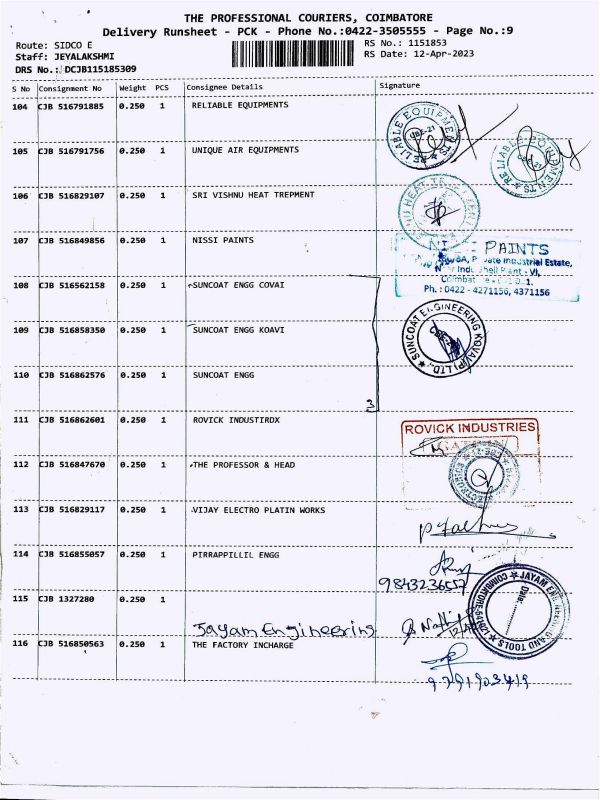 THE PROFESSIONAL COURIERS, COIMBATORE
Delivery Runsheet - PCK - Phone No.:0422-3505555 - Page No.:9
Route: SIDCO E
RS No.: 1151853
Staff: JEYALAKSHMI
RS Date: 12-Apr-2023
DRS No.: DCJB115185309
S No Consignment No Weight PCS Consignee Details Signature
104 CJB 516791885 0.250 1 RELIABLE EQUIPMENTS
RELIABLE EQUIPMENTS
CBE-21
105 CJB 516791756 0.250 1 UNIQUE AIR EQUIPMENTS
RELIABLE EQUIPMENTS
106 CJB 516829107 0.250 1 SRI VISHNU HEAT TREPMENT
HEAT
107 CJB 516849856 0.250 1 NISSI PAINTS
PAINTS
Industrial Estate,
Ph.: 0422 - 4271156, 4371156
108 CJB 516562158 0.250 1 SUNCOAT ENGG COVAI
109 CJB 516858350 0.250 1 SUNCOAT ENGG KOAVI
SUNCOAT ENGINEERING KOVAI (P) LTD.,
110 CJB 516862576 0.250 1 SUNCOAT ENGG
3
111 CJB 516862601 0.250 1 ROVICK INDUSTIRDX
ROVICK INDUSTRIES
112 CJB 516847670 0.250 1 THE PROFESSOR & HEAD
113 CJB 516829117 0.250 1 VIJAY ELECTRO PLATIN WORKS
114 CJB 516855057 0.250 1 PIRRAPPILLIL ENGG
9843236557
115 CJB 1327280 0.250 1
Jayam Engineering
JAYAM ENGINEERING AND TOOLS
Date:
116 CJB 516850563 0.250 1 THE FACTORY INCHARGE
9791903419